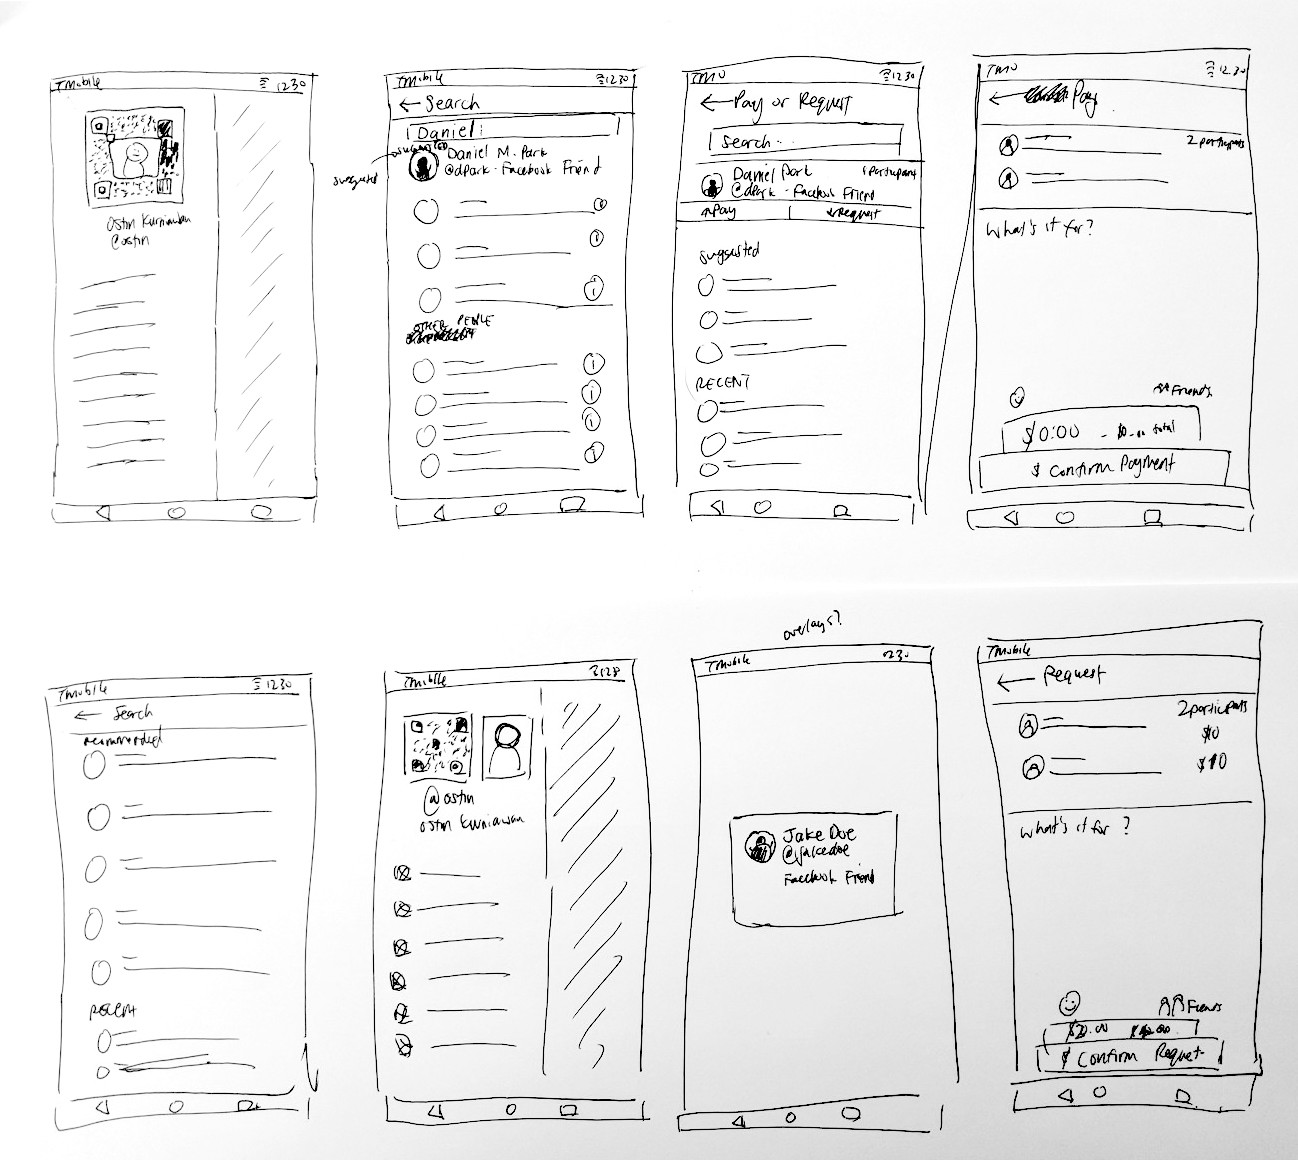 TMobile 1230
Ostin Kurniawan
@ostin
TMobile 1230
← Search
Daniel
suggested
suggested
Daniel M. Park
@dpark - Facebook Friend
i
i
i
OTHER PEOPLE
i
i
i
i
TMO 1230
← Pay or Request
Search...
Daniel Park 1 participant
@dpark - Facebook Friend
Pay Request
suggested
RECENT
TMO 1230
← Pay
2 participants
What's it for?
Friends
$0.00 - $0.00 total
$ Confirm Payment
TMobile 1230
← Search
recommended
RECENT
TMobile
@ostin
Ostin Kurniawan
overlays?
TMobile 1230
Jake Doe
@jakedoe
Facebook Friend
TMobile
← Request
2 participants
$10
$10
What's it for?
Friends
$20.00
$ Confirm Request